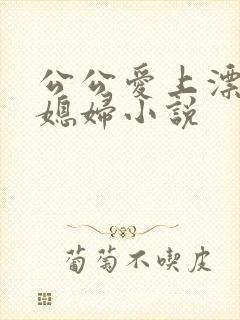 公公愛上漂
媳婦小説
葡萄不喫皮